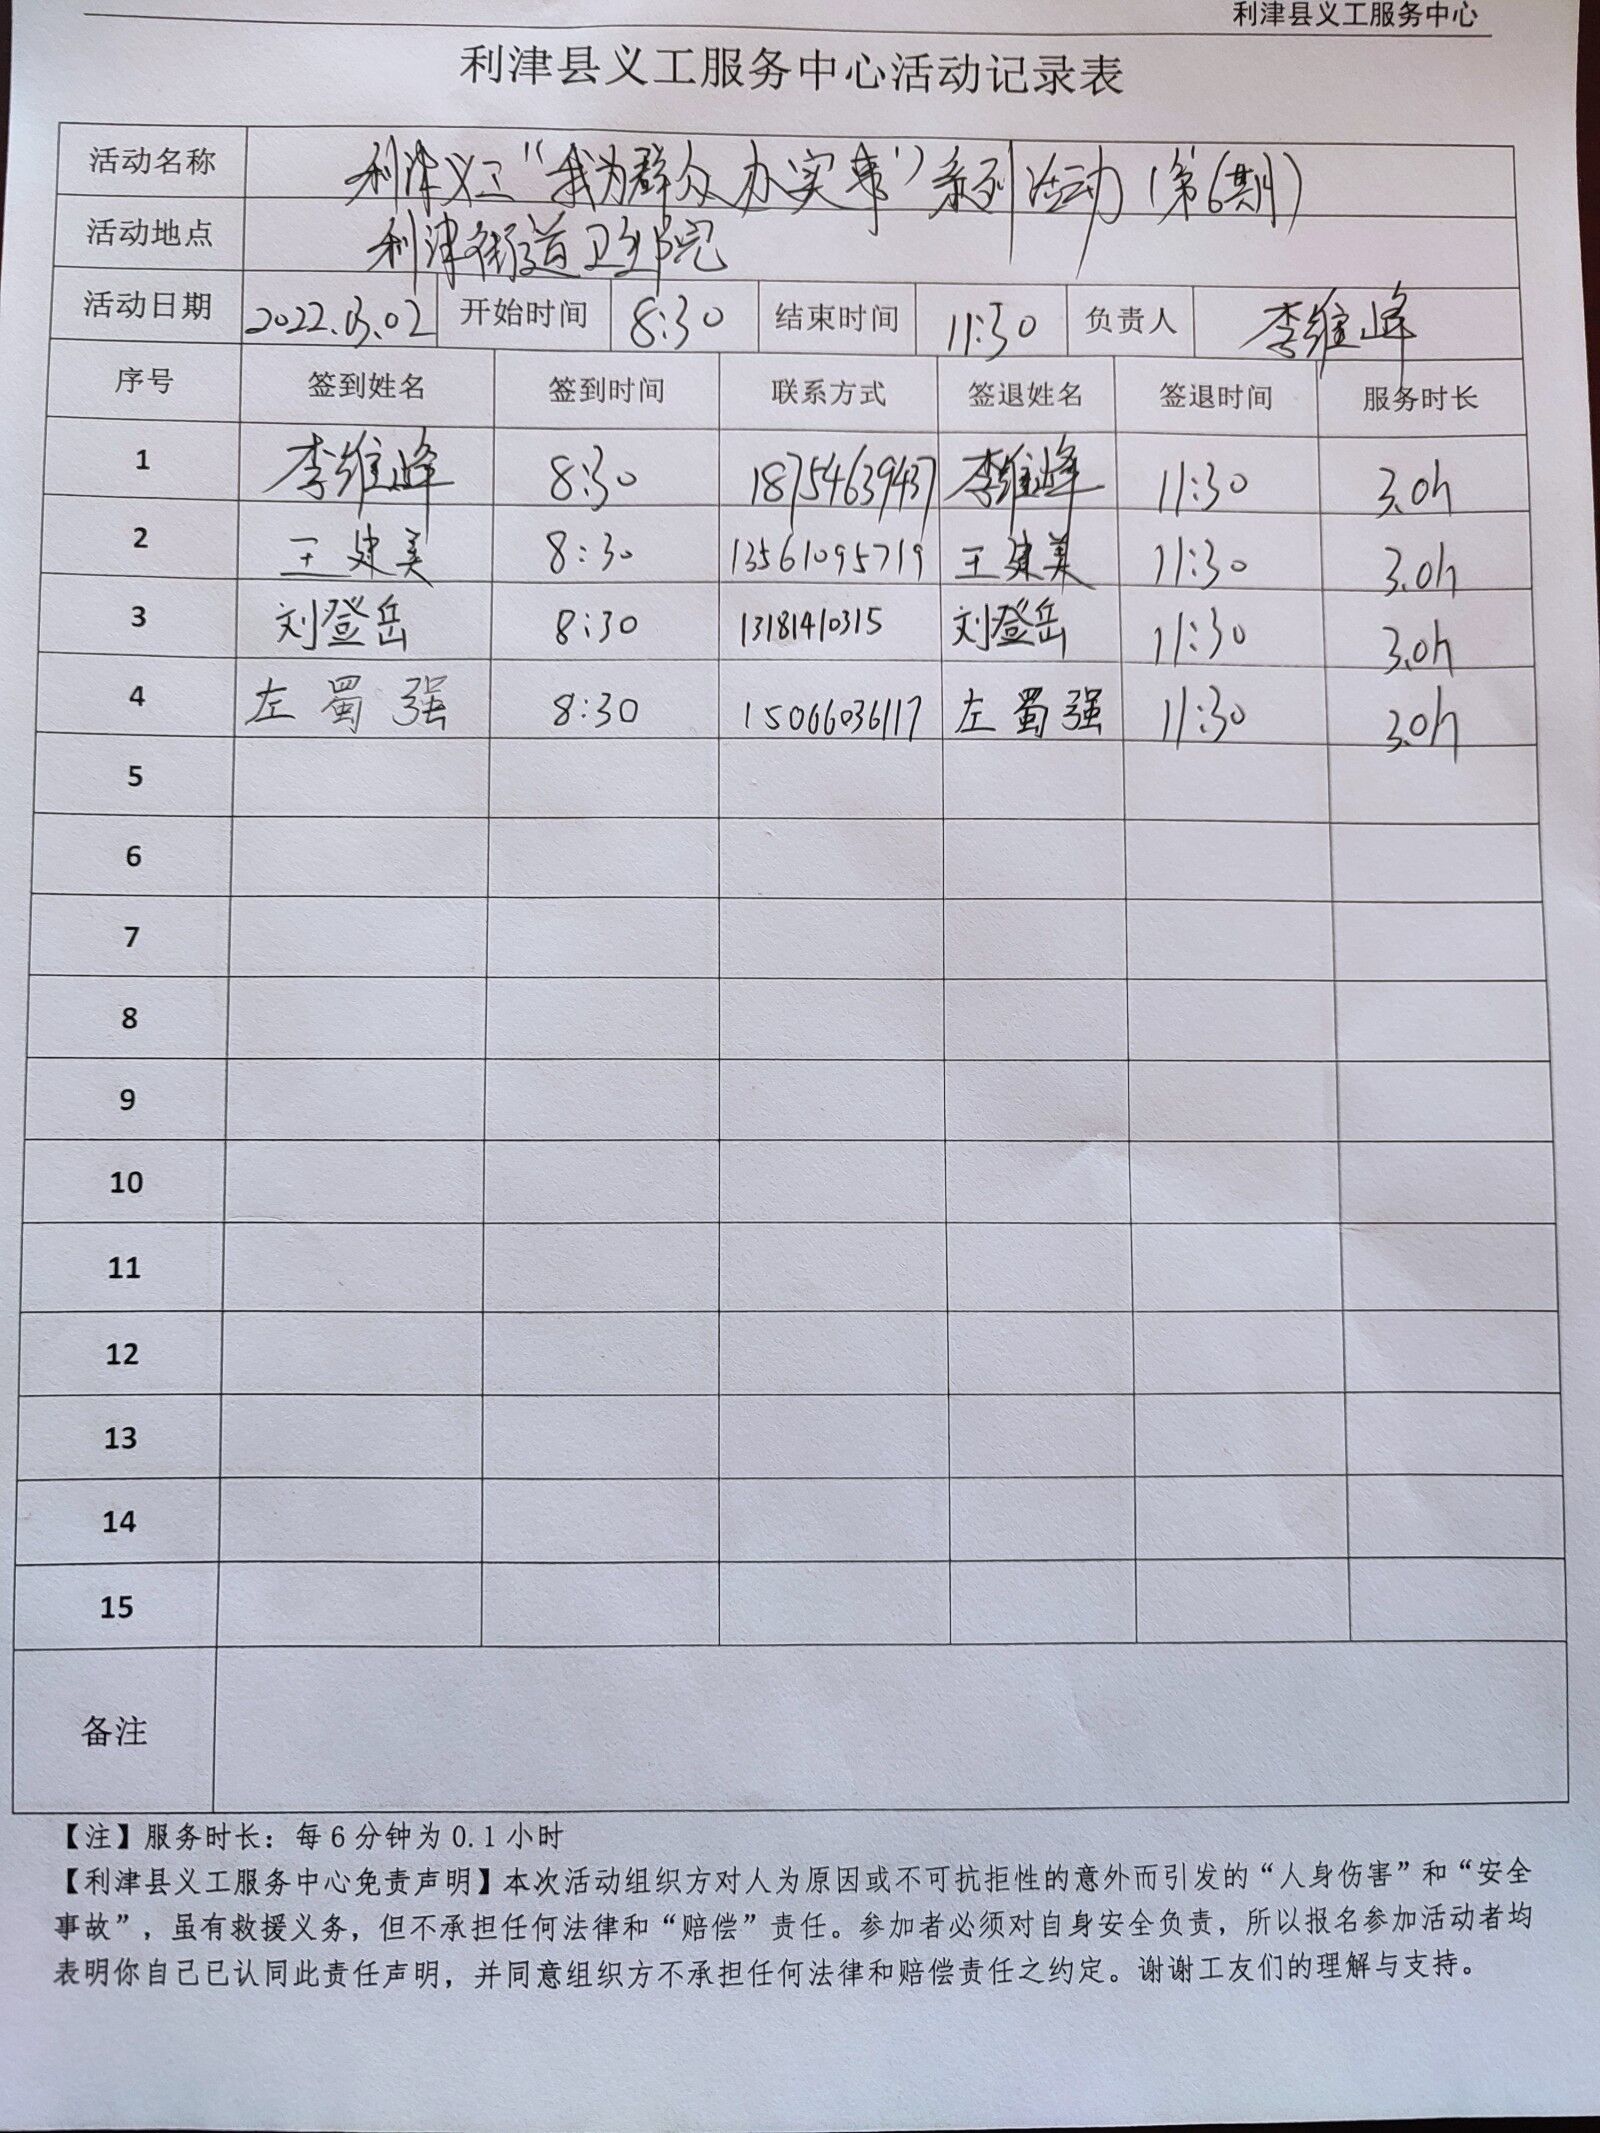 利津县义工服务中心
利津县义工服务中心活动记录表
活动名称 利津义工“我为群众办实事”系列活动（第6期）
活动地点 利津街道卫生院
活动日期 2022.03.02 开始时间 8:30 结束时间 11:30 负责人 李维峰
序号 签到姓名 签到时间 联系方式 签退姓名 签退时间 服务时长
1 李维峰 8:30 18754639437 李维峰 11:30 3.0h
2 王建美 8:30 13561095719 王建美 11:30 3.0h
3 刘登岳 8:30 13181410315 刘登岳 11:30 3.0h
4 左蜀强 8:30 15066036117 左蜀强 11:30 3.0h
5
6
7
8
9
10
11
12
13
14
15
备注
【注】服务时长：每6分钟为0.1小时
【利津县义工服务中心免责声明】本次活动组织方对人为原因或不可抗拒性的意外而引发的“人身伤害”和“安全
事故”，虽有救援义务，但不承担任何法律和“赔偿”责任。参加者必须对自身安全负责，所以报名参加活动者均
表明你自己已认同此责任声明，并同意组织方不承担任何法律和赔偿责任之约定。谢谢工友们的理解与支持。